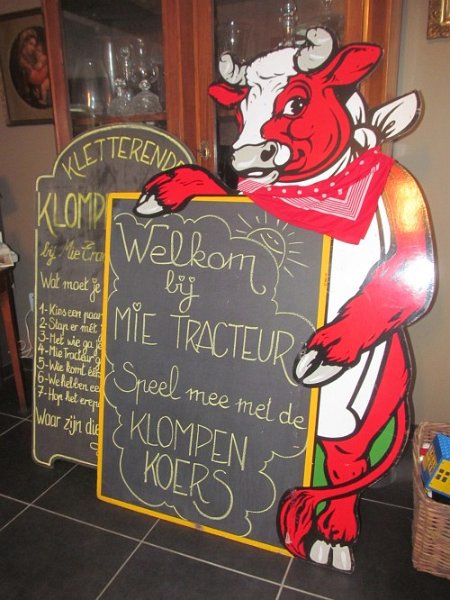 KLETTERENDE
KLOMP
bij Mie Trac
Wat moet je
1- Kies een paar
2- Stap er mét
3- Met wie ga j
4- Mie Tracteur g
5- Wie komt éé
6- We hebben ee
7- Hop het erepo
Waar zijn die
Welkom
bij
MIE TRACTEUR
Speel mee met de
KLOMPEN
KOERS